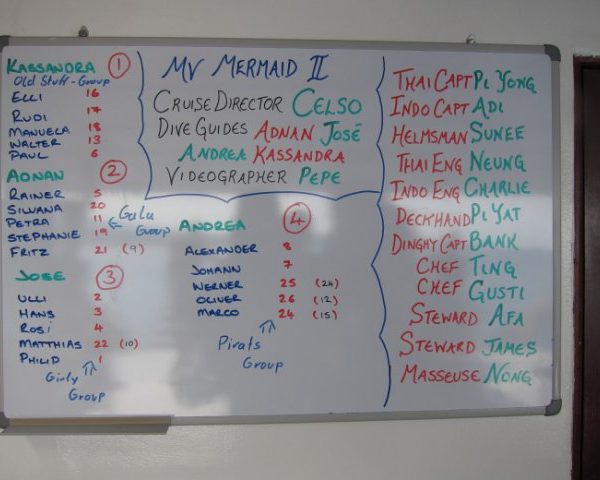 KASSANDRA 1
Old Stuff-Group
ELLI 16
RUDI 17
MANUELA 18
WALTER 13
PAUL 6
ADNAN 2
RAINER 5
SILVANA 20
PETRA 11
STEPHANIE 19
Gulu Group
FRITZ 21 (9)
JOSE 3
ULLI 2
HANS 3
ROSI 4
MATTHIAS 22 (10)
PHILIP 1
Girly Group
MV MERMAID II
CRUISE DIRECTOR CELSO
DIVE GUIDES ADNAN JOSÉ
ANDREA KASSANDRA
VIDEOGRAPHER PEPE
ANDREA 4
ALEXANDER 8
JOHANN 7
WERNER 25 (24)
OLIVER 26 (12)
MARCO 24 (15)
Pirats Group
THAI CAPT PI YONG
INDO CAPT ADI
HELMSMAN SUNEE
THAI ENG NEUNG
INDO ENG CHARLIE
DECKHAND PI YAT
DINGHY CAPT BANK
CHEF TING
CHEF GUSTI
STEWARD AFA
STEWARD JAMES
MASSEUSE NONG